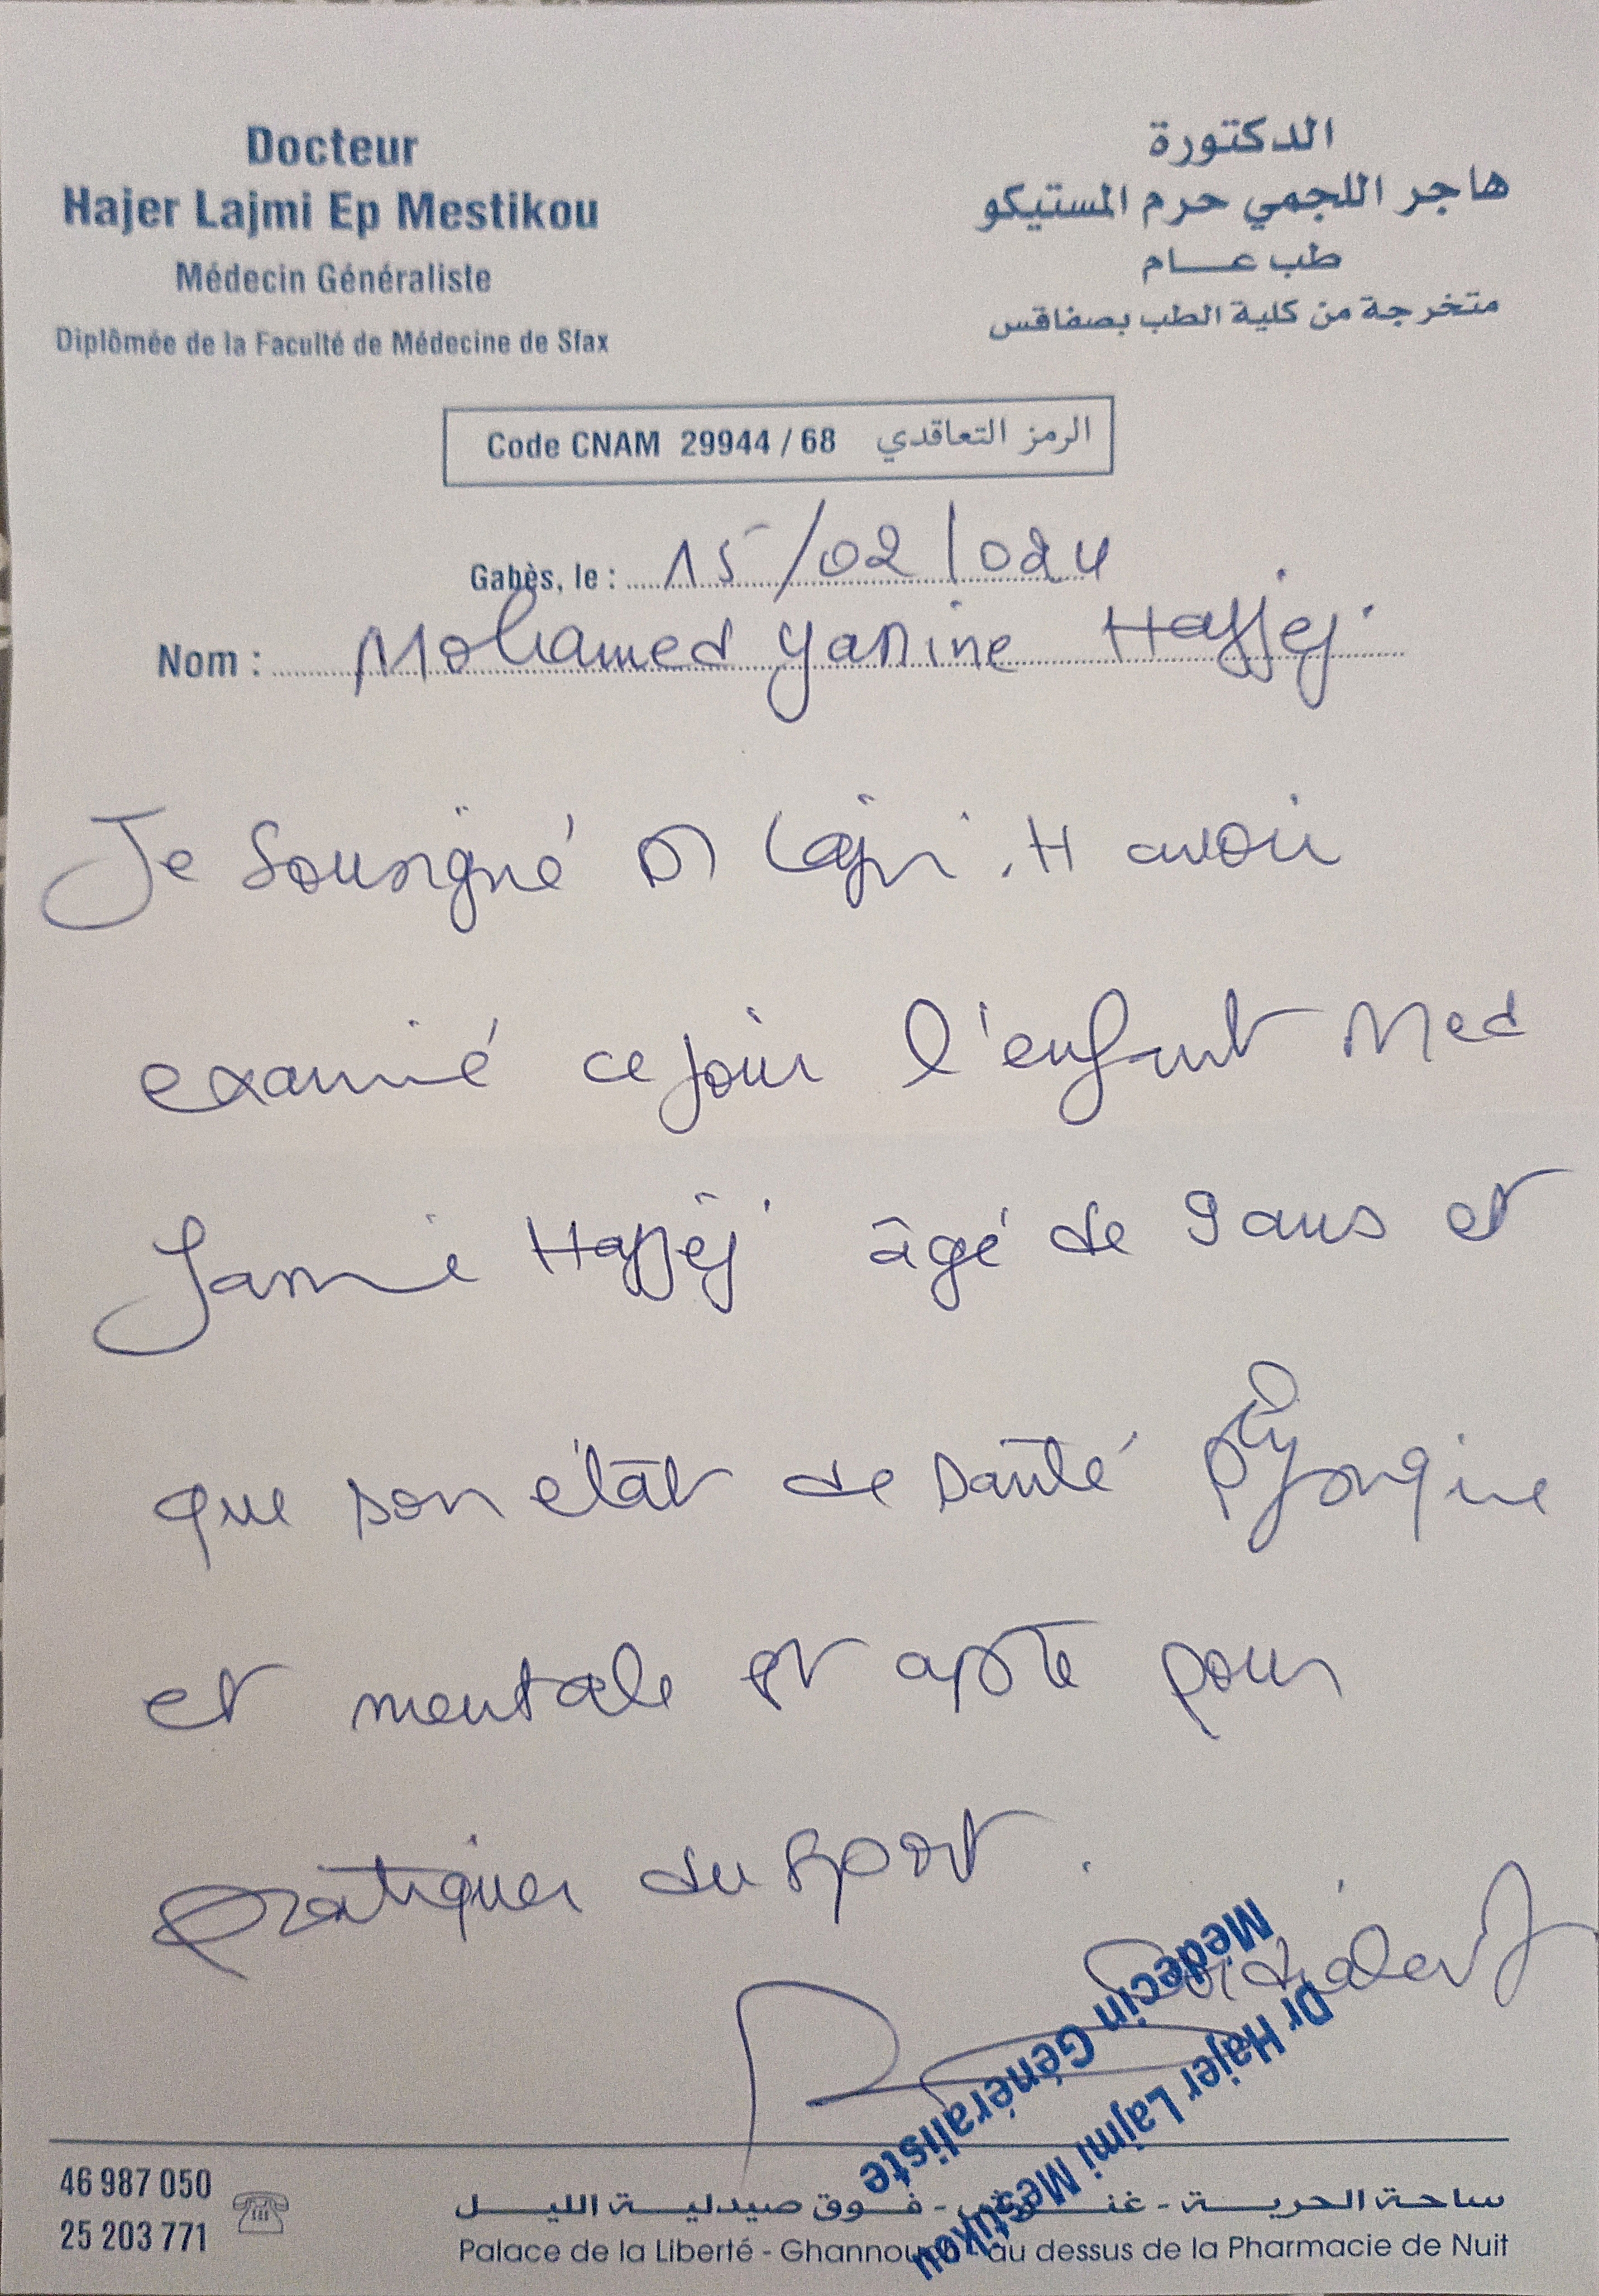 Docteur
Hajer Lajmi Ep Mestikou
Médecin Généraliste
Diplômée de la Faculté de Médecine de Sfax
الدكتورة
هاجر اللجمي حرم المستيكو
طب عـــام
متخرجة من كلية الطب بصفاقس
Code CNAM 29944 / 68 الرمز التعاقدي
Gabès, le : 15/02/024
Nom : Mohamed Yassine Hajjej
Je soussigné Dr Lajmi . H avoir
examiné ce jour l'enfant Med
Yassine Hajjej âgé de 9 ans et
que son état de santé physique
et mentale est apte pour
pratiquer du sport .
Dr Hajer Lajmi Mestikou
Médecin Généraliste
46 987 050
25 203 771
ساحة الحرية - غنوش - فوق صيدلية الليل
Palace de la Liberté - Ghannouch - au dessus de la Pharmacie de Nuit